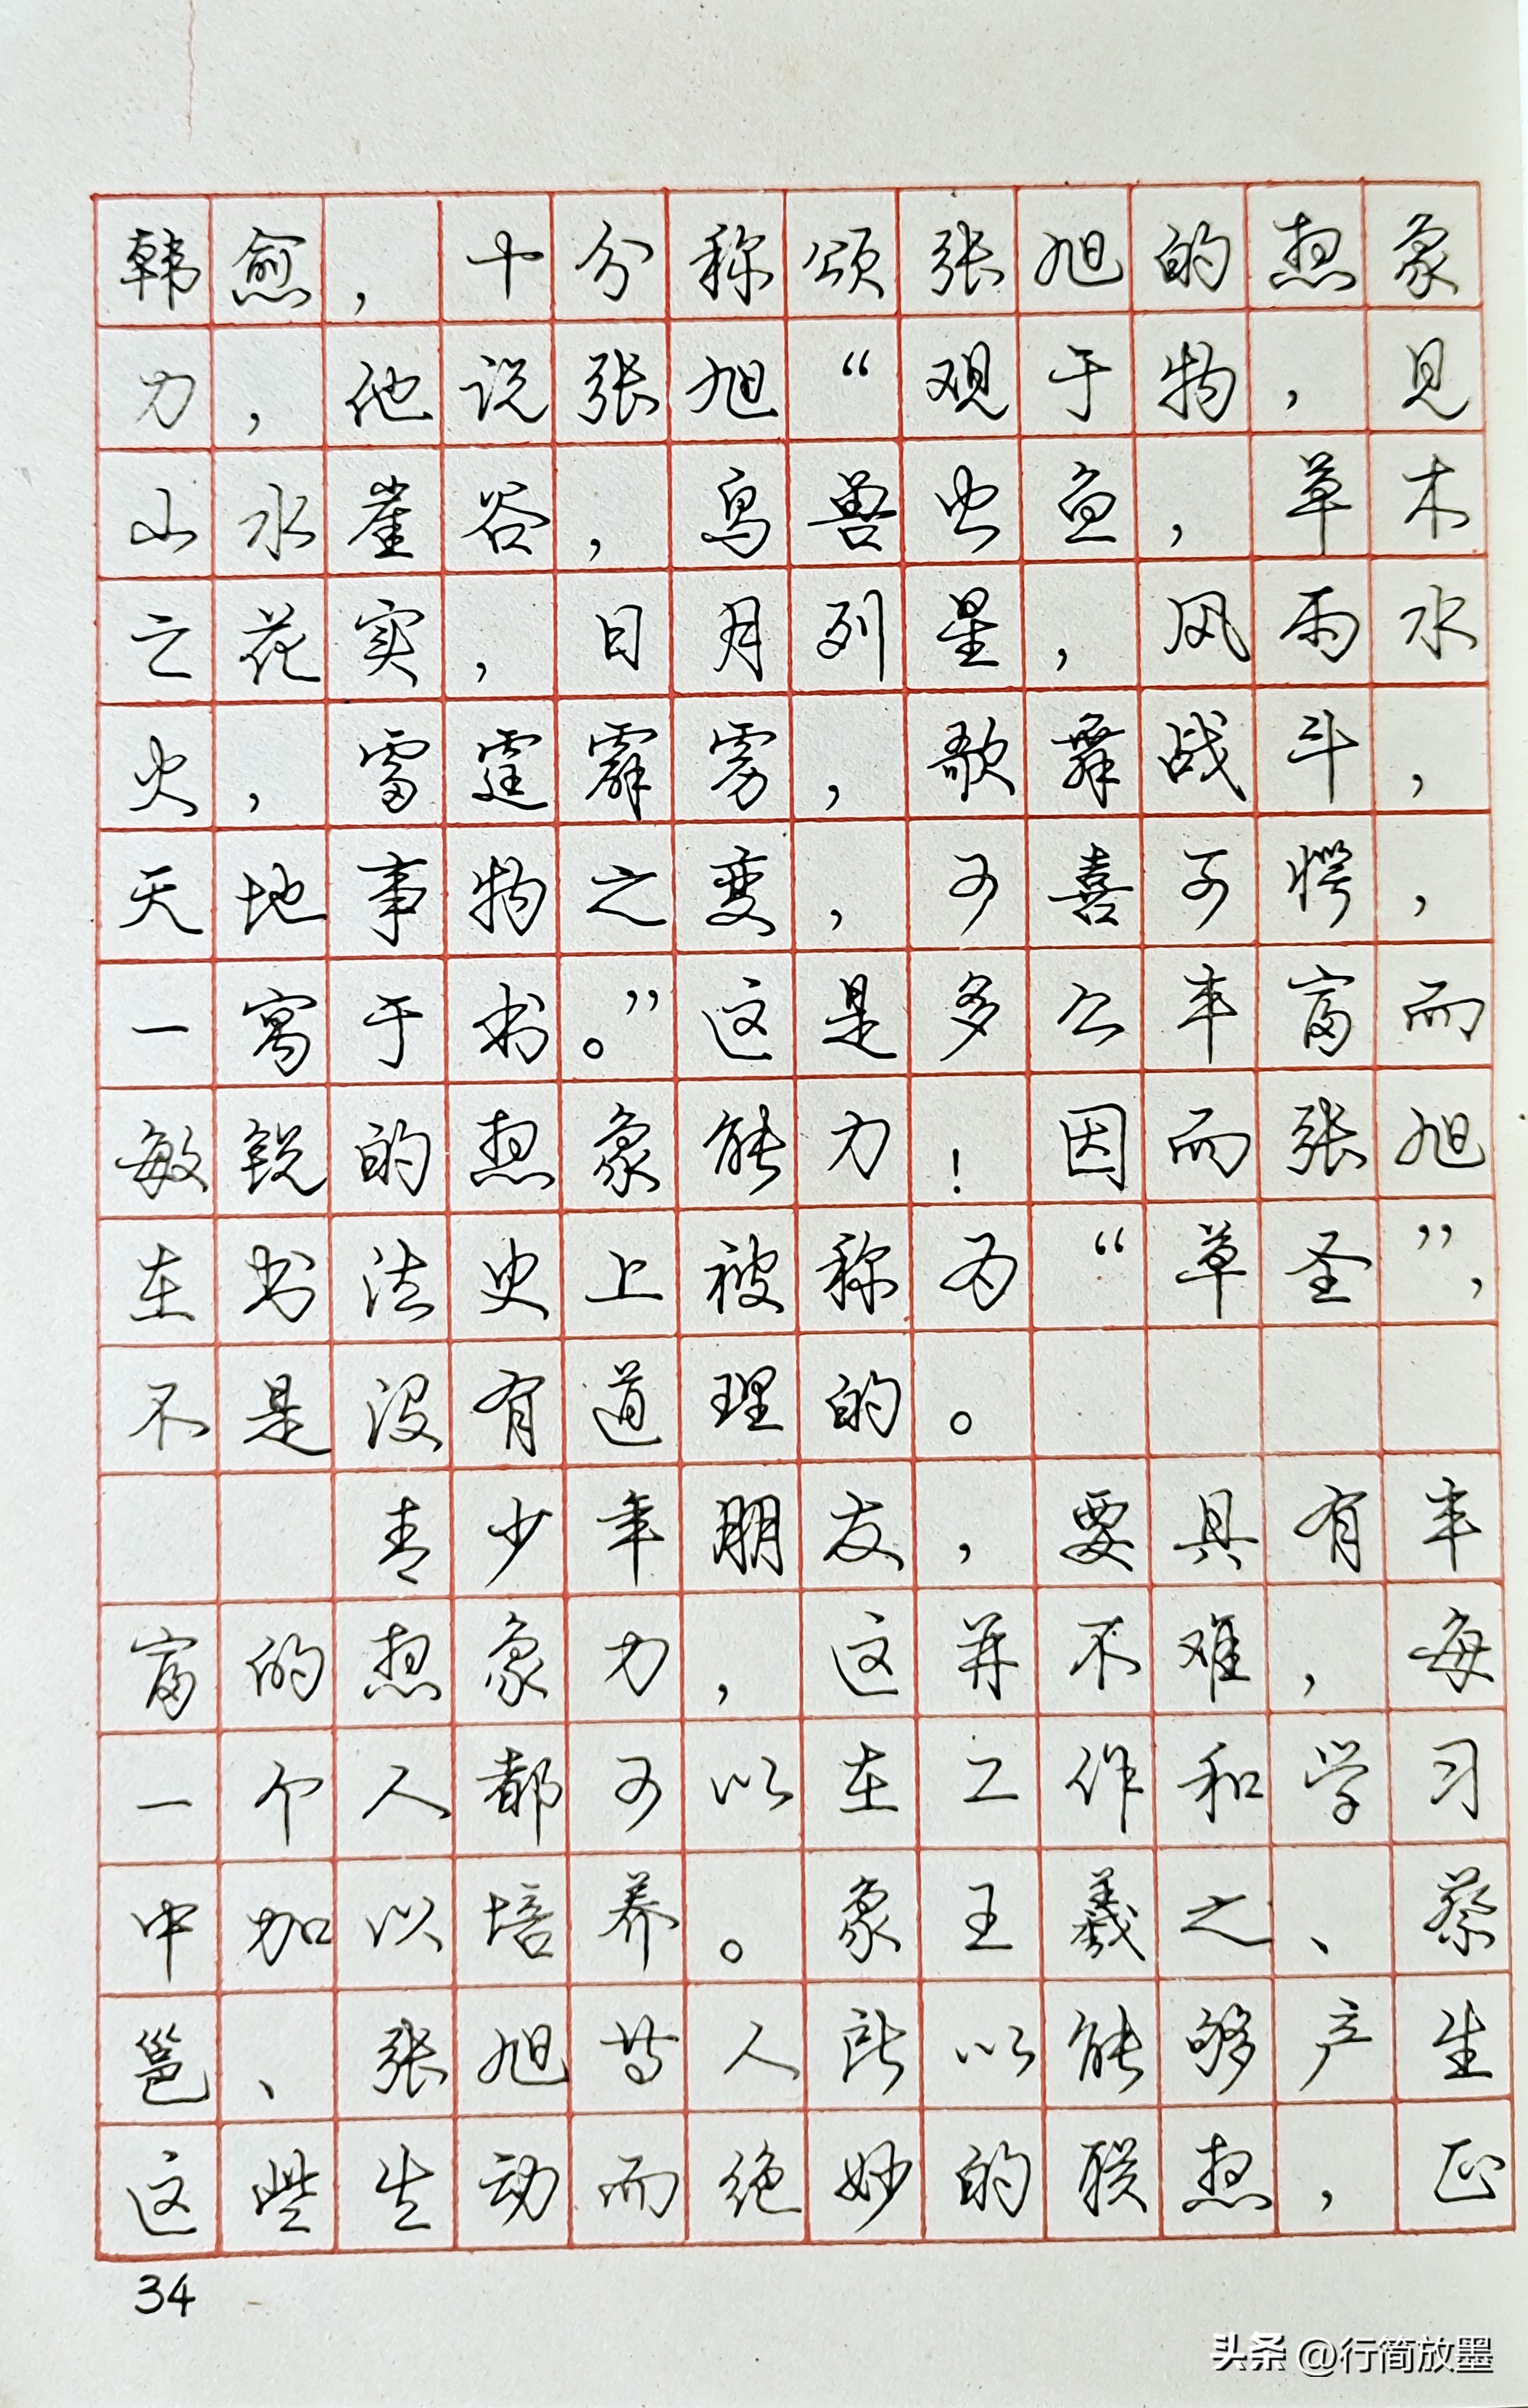 韩愈，十分称颂张旭的想象
力，他说张旭“观于物，见
山水崖谷，鸟兽虫鱼，草木
之花实，日月列星，风雨水
火，雷霆霹雳，歌舞战斗，
天地事物之变，可喜可愕，
一寓于书。”这是多么丰富而
敏锐的想象能力！因而张旭
在书法史上被称为“草圣”，
不是没有道理的。
青少年朋友，要具有丰
富的想象力，这并不难，每
一个人都可以在工作和学习
中加以培养。象王羲之、蔡
邕、张旭等人所以能够产生
这些生动而绝妙的联想，正
34
头条 @行简放墨